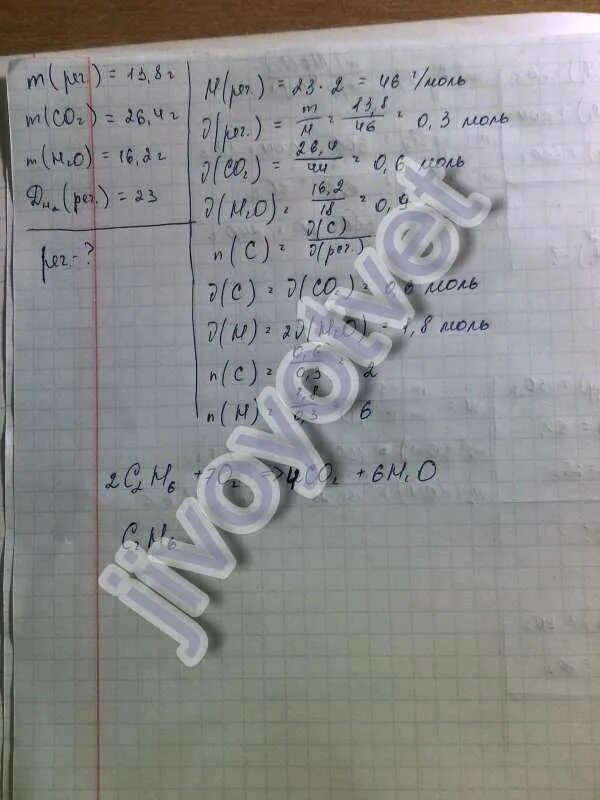 m(рег.) = 13,8 г
m(CO₂) = 26,4 г
m(H₂O) = 16,2 г
D_H₂(рег.) = 23
рег. - ?
M(рег.) = 23 · 2 = 46 г/моль
ϑ(рег.) = m/M = 13,8/46 = 0,3 моль
ϑ(CO₂) = 26,4/44 = 0,6 моль
ϑ(H₂O) = 16,2/18 = 0,9
n(C) = ϑ(C)/ϑ(рег.)
ϑ(C) = ϑ(CO₂) = 0,6 моль
ϑ(H) = 2ϑ(H₂O) = 1,8 моль
n(C) = 0,6/0,3 = 2
n(H) = 1,8/0,3 = 6
2C₂H₆ + 7O₂ => 4CO₂ + 6H₂O
C₂H₆
jivoyotvet